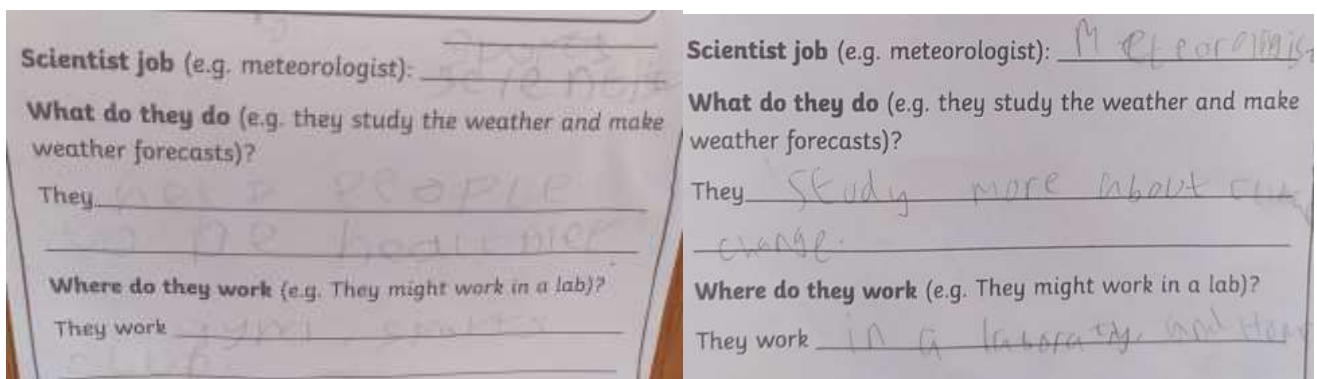 sports
Scientist job (e.g. meteorologist): scientist
What do they do (e.g. they study the weather and make
weather forecasts)?
They help people
to be healthier
Where do they work (e.g. They might work in a lab)?
They work gym, sports
club
Scientist job (e.g. meteorologist): Meteorologis
What do they do (e.g. they study the weather and make
weather forecasts)?
They study more about
change.
Where do they work (e.g. They might work in a lab)?
They work in a laboraty, and